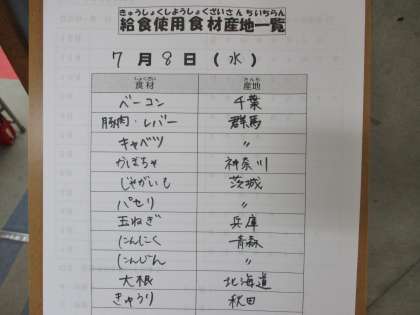 きゅうしょくしようしょくざいさんちいちらん
給食使用食材産地一覧
7月8日(水)
しょくざい さんち
食材 産地
ベーコン 千葉
豚肉・レバー 群馬
キャベツ 〃
かぼちゃ 神奈川
じゃがいも 茨城
パセリ 〃
玉ねぎ 兵庫
にんにく 青森
にんじん 〃
大根 北海道
きゅうり 秋田